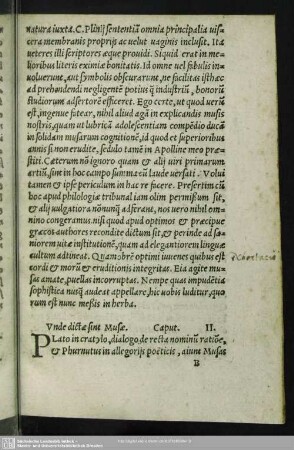 natura iuxta. C. Plinij sententiũ omnia principalia uis/
cera membranis proprijs ac uelut uaginis inclusit. Ita
ueteres illi scriptores æque prouidi. Siquid erat in me/
lioribus literis eximiæ bonitatis. Id omne uel fabulis in/
uoluerunt, aut symbolis obscurarunt, ne facilitas isthæc
ad prehendendi negligentẽ potius q̃ industriũ, bonorũ
studiorum adsertorẽ efficeret. Ego certe, ut quod uerũ
est, ingenue fatear, nihil aliud agã in explicandis musis
nostris, quam ut lubricã adolescentiam compẽdio ducã
in solidam musarum cognitionẽ, id quod et superioribus
annis si non erudite, sedulo tamẽ in Apolline meo præ/
stiti. Cæterum nõ ignoro quam & alij uiri primarum
artiũ, sint in hoc campo summa cũ laude uersati. Volui
tamen & ipse periculum in hac re facere. Presertim cũ
hoc apud philologiæ tribunal iam olim permissum sit,
& alij uulgatora nõnunq̃ adferant, nos uero nihil om/
nino congeramus nisi quod apud optimos & præcipue
græcos authores recondite dictum sit, & perinde ad sa/
niorem uitæ institutionẽ, quam ad elegantiorem linguæ
cultum adtineat. Quamobrẽ optimi iuuenes quibus est
cordi & morũ & eruditionis integritas. Eia agite mu/
sas amate, puellas incorruptas. Nempe quas impudẽtia
sophistica nusq̃ audeat appellare, hic uobis luditur, quo
rum est nunc messis in herba.
Vnde dictæ sint Musæ. Caput. II.
PLato in cratylo, dialogo de recta nominũ ratiõe,
& Phurnutus in allegorijs poëticis, aiunt Musas
B